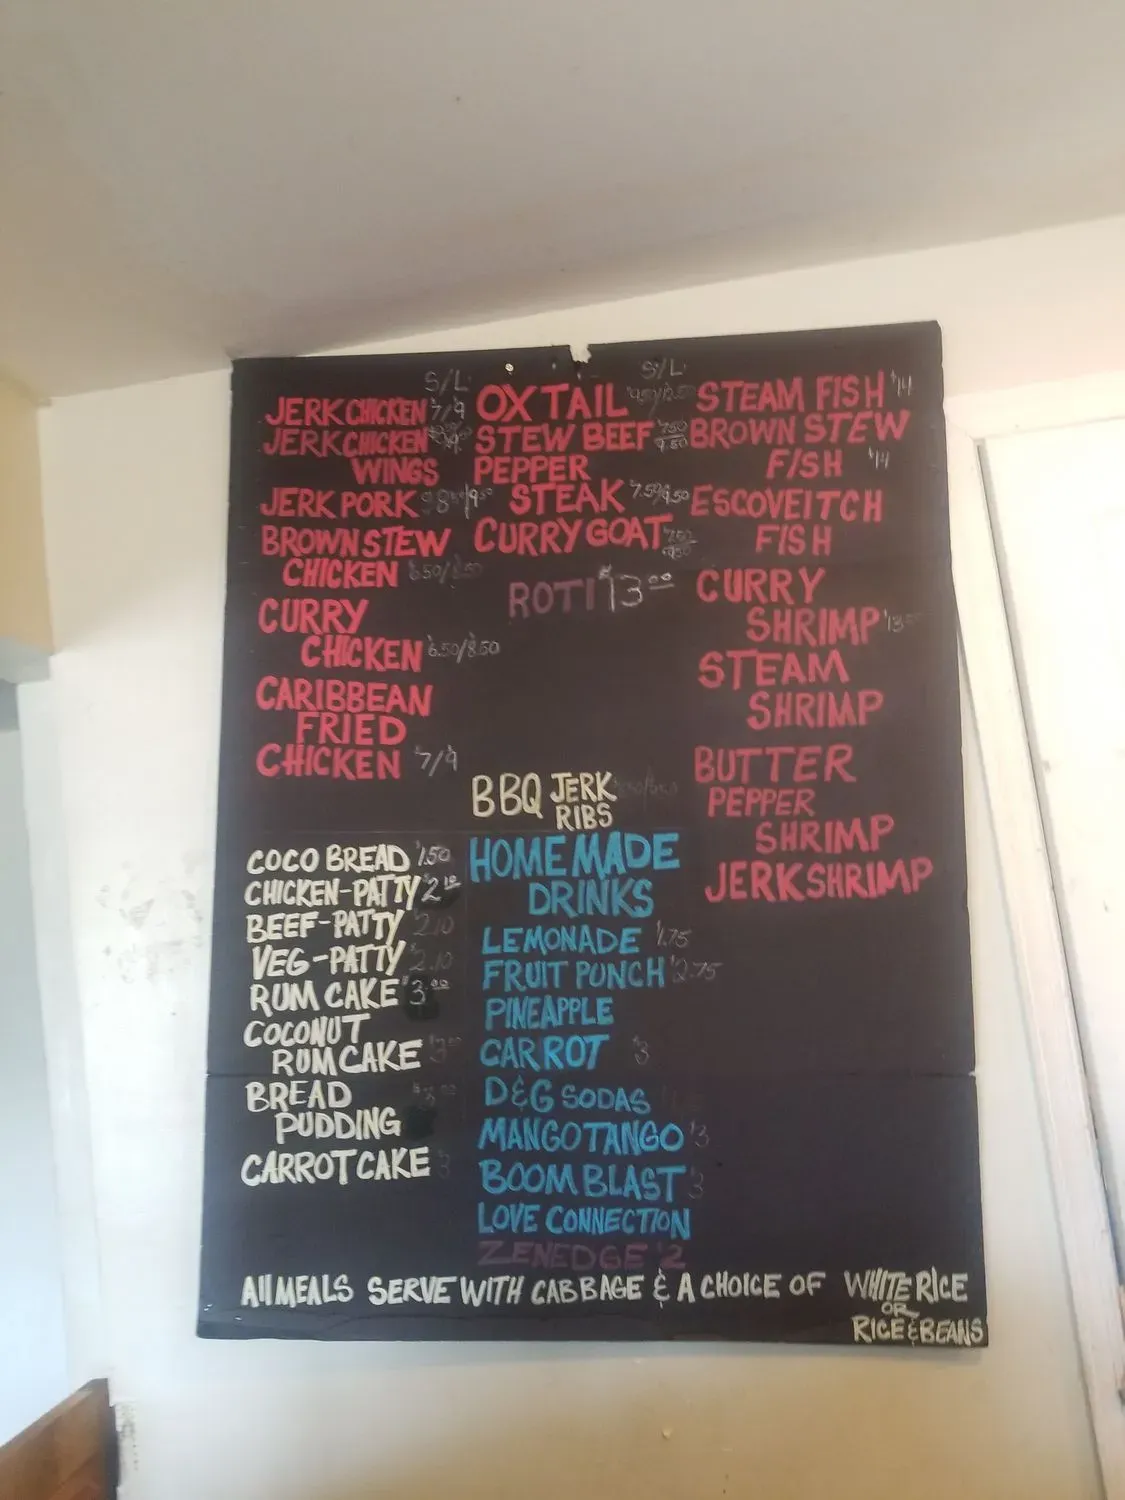 S/L
JERK CHICKEN $7/9
JERK CHICKEN
WINGS
JERK PORK
BROWN STEW
CHICKEN 6.50/8.50
CURRY
CHICKEN 6.50/8.50
CARIBBEAN
FRIED
CHICKEN $7/9
COCO BREAD $1.50
CHICKEN-PATTY $2.10
BEEF-PATTY $2.10
VEG-PATTY $2.10
RUM CAKE $3.00
COCONUT
RUM CAKE
BREAD
PUDDING
CARROT CAKE 3
S/L
OX TAIL
STEW BEEF 7.50
9.50
PEPPER
STEAK 7.50/9.50
CURRY GOAT 7.50
9.50
ROTI $13.00
BBQ JERK
RIBS
HOMEMADE
DRINKS
LEMONADE $1.75
FRUIT PUNCH $2.75
PINEAPPLE
CARROT $3
D&G SODAS
MANGO TANGO $3
BOOM BLAST 3
LOVE CONNECTION
ZENEDGE $2
STEAM FISH $14
BROWN STEW
FISH $14
ESCOVEITCH
FISH
CURRY
SHRIMP
STEAM
SHRIMP
BUTTER
PEPPER
SHRIMP
JERK SHRIMP
All MEALS SERVE WITH CABBAGE & A CHOICE OF WHITE RICE
OR
RICE & BEANS